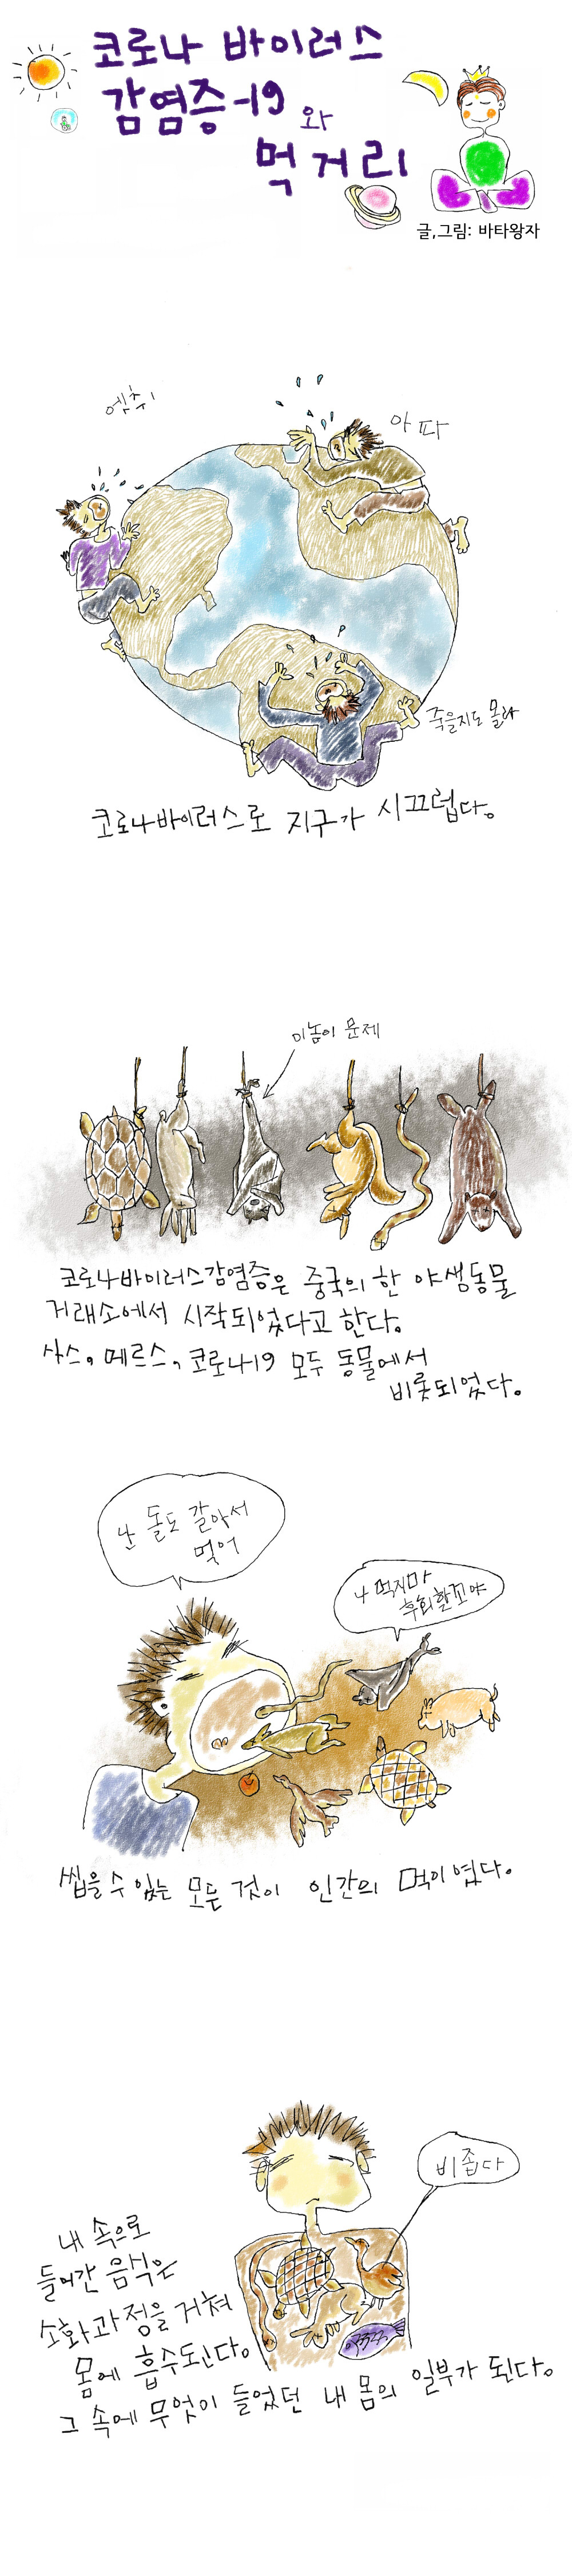 코로나 바이러스
감염증-19 와
먹거리
글,그림: 바타왕자
엣취!
아파
죽을지도 몰라
코로나바이러스로 지구가 시끄럽다.
이놈이 문제
코로나바이러스감염증은 중국의 한 야생동물
거래소에서 시작되었다고 한다.
사스, 메르스, 코로나19 모두 동물에서
비롯되었다.
난 돌도 갈아서
먹어
나 먹지마
후회할꼬야
씹을 수 있는 모든 것이 인간의 먹이였다.
비좁다
내 속으로
들어간 음식은
소화과정을 거쳐
몸에 흡수된다.
그 속에 무엇이 들었던 내 몸의 일부가 된다.